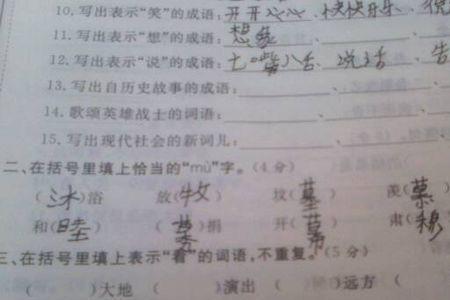 10. 写出表示“笑”的成语:开开心心、快快乐乐、
11. 写出表示“想”的成语:想象、
12. 写出表示“说”的成语:七嘴八舌、说话、告
13. 写出自历史故事的成语:
14. 歌颂英雄战士的词语:
15. 写出现代社会的新词儿:
二、在括号里填上恰当的“mù”字。(4分)
(沐)浴 放(牧) 坟(墓) 羡(慕)
和(睦) (募)捐 开(幕) 肃(穆)
三、在括号里填上表示“看”的词语,不重复。(5分)
( )大地 ( )演出 ( )远方 (